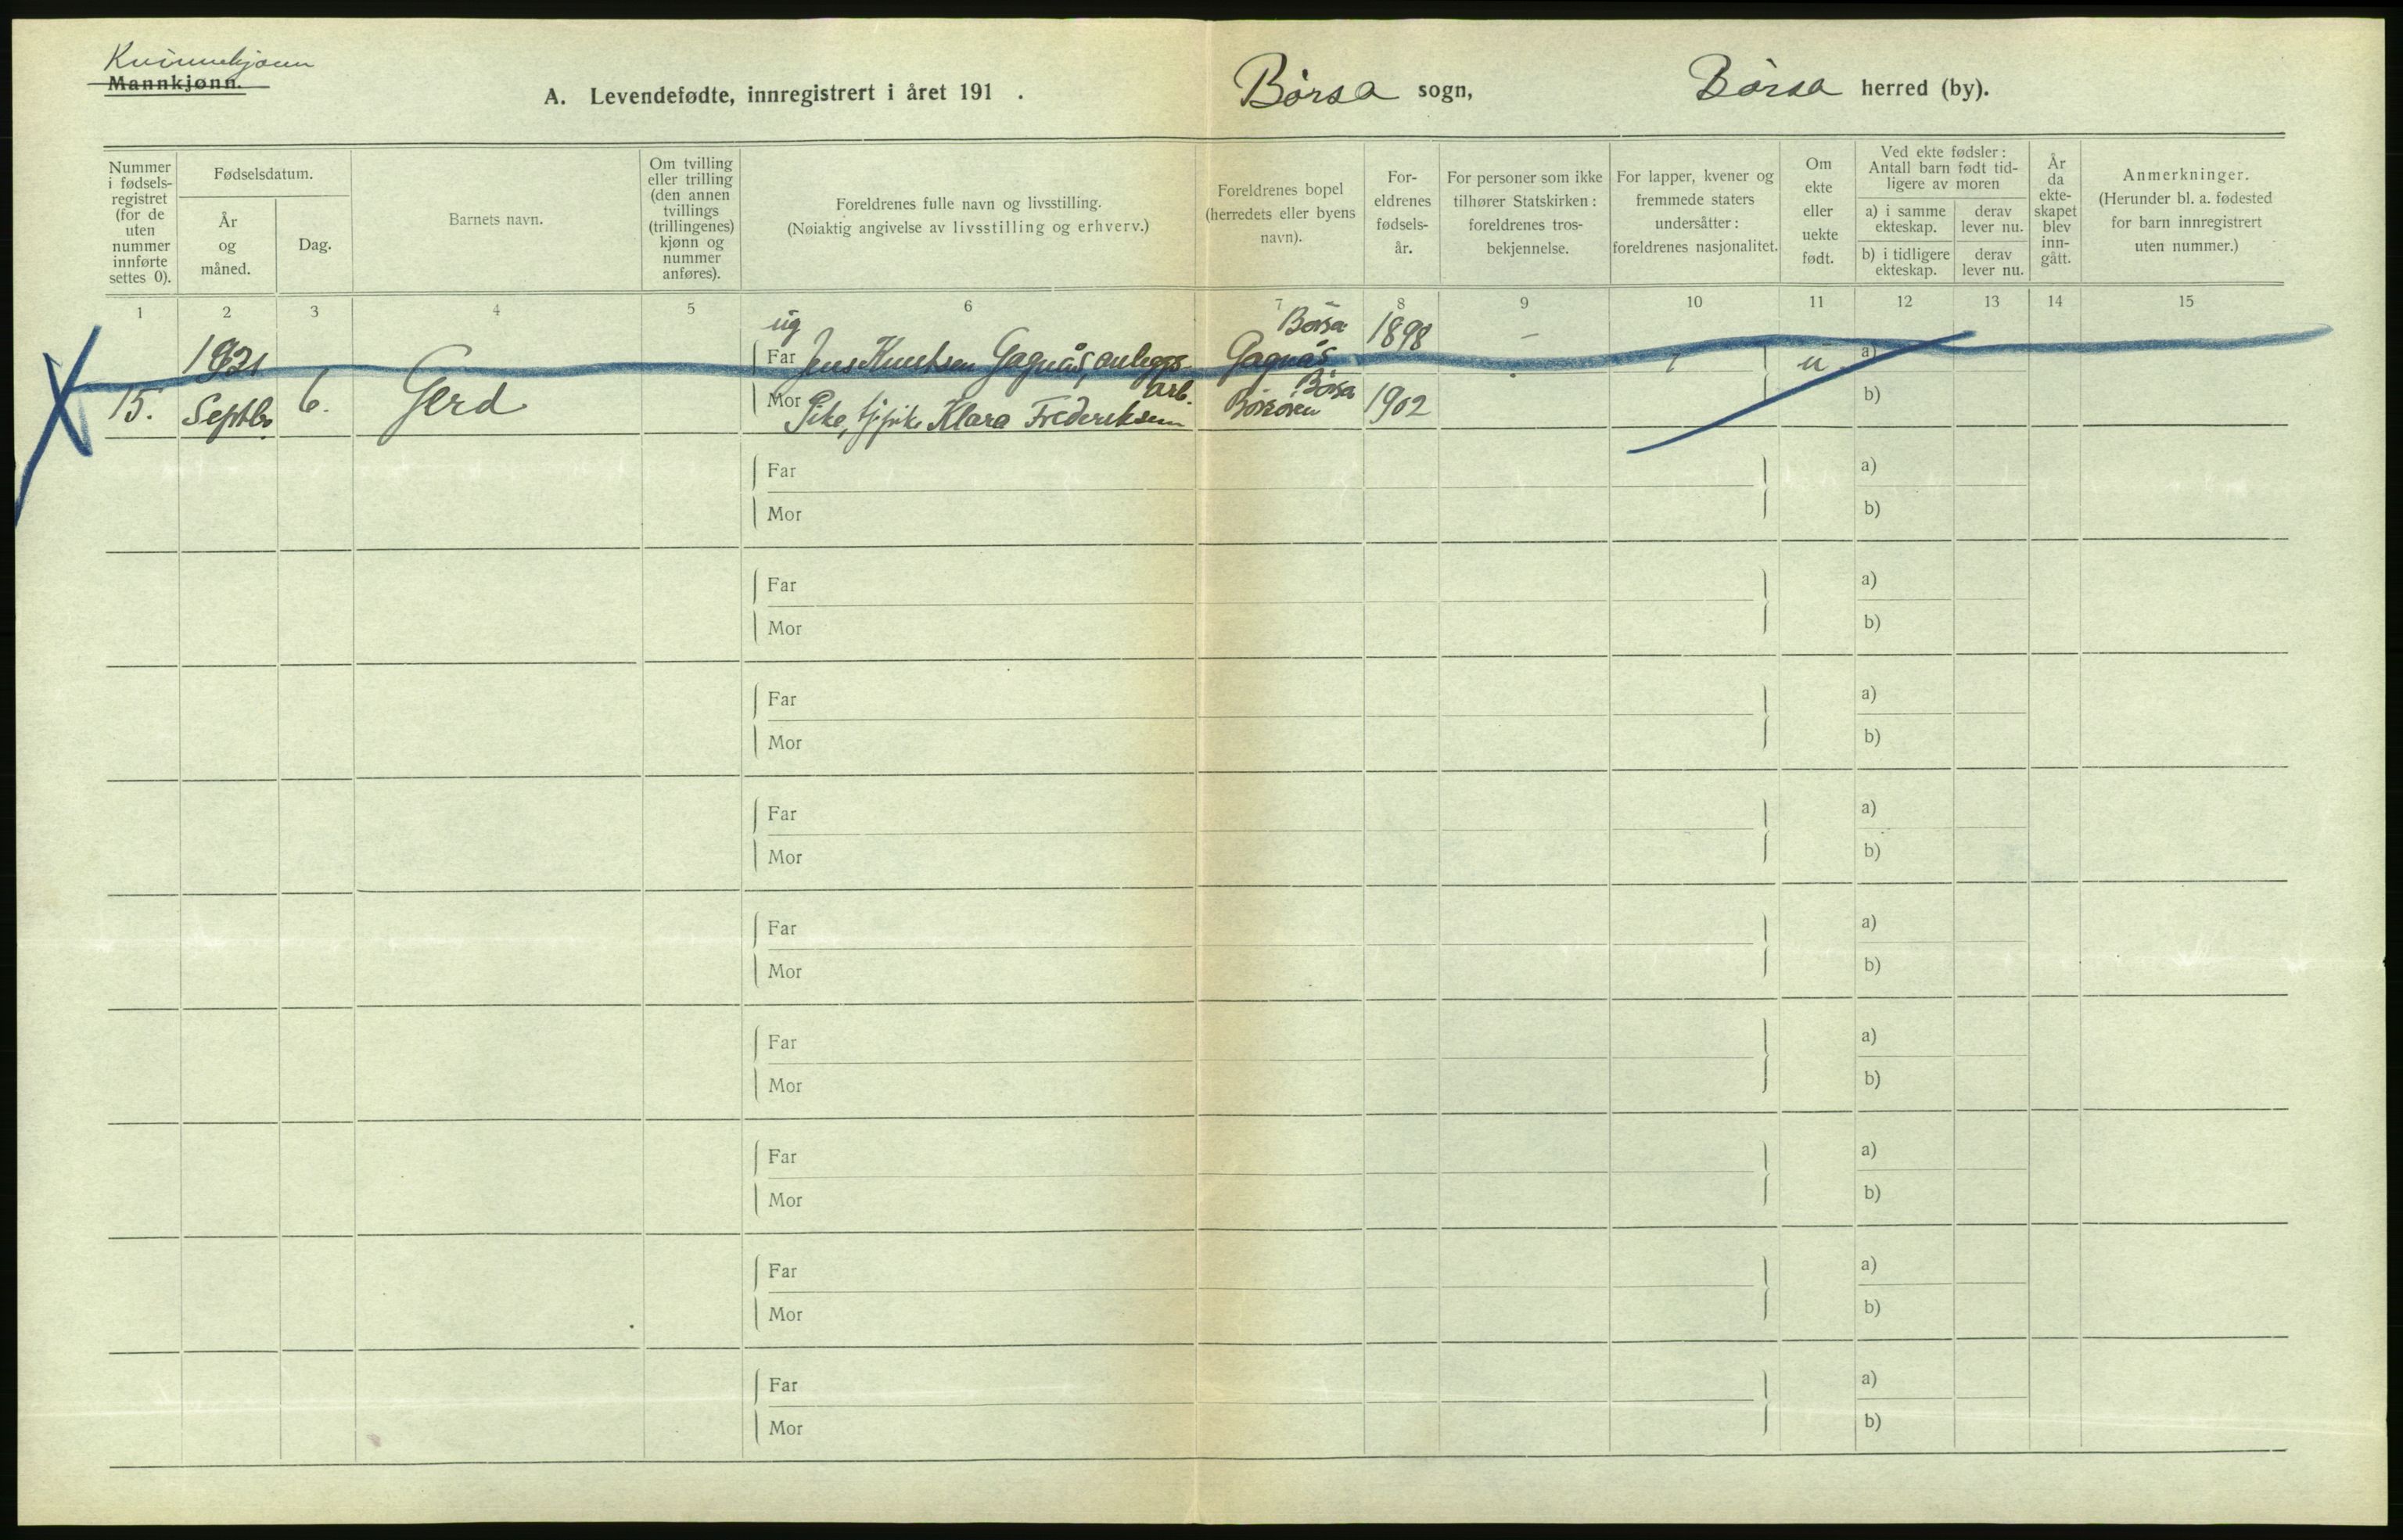 Kvinnekjønn
Mannkjønn.
A. Levendefødte, innregistrert i året 191 .
Børsa sogn,
Børsa herred (by).
Nummer i fødsels-registret (for de uten nummer innførte settes 0).
Fødselsdatum.
År og måned.
Dag.
Barnets navn.
Om tvilling eller trilling (den annen tvillings (trillingenes) kjønn og nummer anføres).
Foreldrenes fulle navn og livsstilling.
(Nøiaktig angivelse av livsstilling og erhverv.)
Foreldrenes bopel (herredets eller byens navn).
For-eldrenes fødsels-år.
For personer som ikke tilhører Statskirken: foreldrenes tros-bekjennelse.
For lapper, kvener og fremmede staters undersåtter: foreldrenes nasjonalitet.
Om ekte eller uekte født.
Ved ekte fødsler: Antall barn født tid-ligere av moren
a) i samme ekteskap.
derav lever nu.
b) i tidligere ekteskap.
derav lever nu.
År da ekte-skapet blev inn-gått.
Anmerkninger.
(Herunder bl. a. fødested for barn innregistrert uten nummer.)
1 2 3 4 5 6 7 8 9 10 11 12 13 14 15
ug Børsa 1898 –
1921 Far Jens Knutsen Gagnås, anleggs- Gagnås u a)
arb. Børsa
15. Septbr. 6. Gerd Mor Pike, tj.pike Klara Frederiksen Børsøren 1902 b)
Far a)
Mor b)
Far a)
Mor b)
Far a)
Mor b)
Far a)
Mor b)
Far a)
Mor b)
Far a)
Mor b)
Far a)
Mor b)
Far a)
Mor b)
Far a)
Mor b)